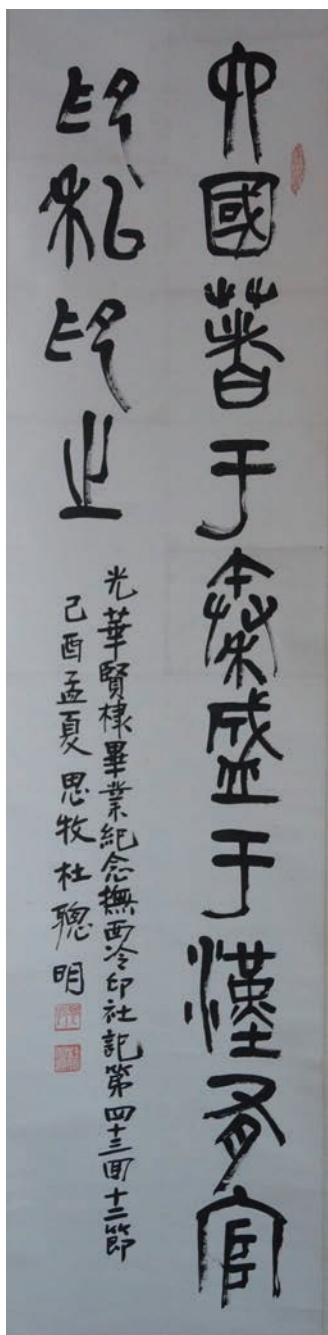 六國著于秦盛于漢有官
印私印之
光華賢棣畢業紀念撫西冷印社記第四十三回十二節
己酉孟夏 思牧 杜聰明